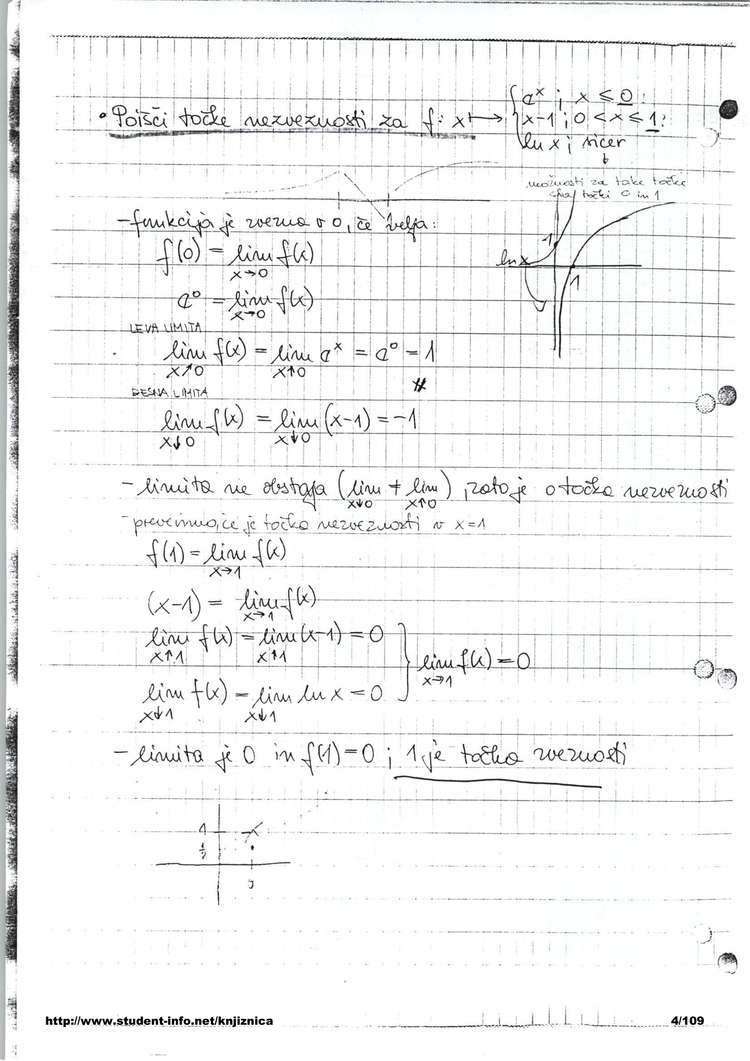 • Poišči točke nezveznosti za f: x ↦ { aˣ ; x ≤ 0
x-1 ; 0 < x ≤ 1
ln x ; sicer
možnosti za take točke
sta točki 0 in 1
- funkcija je zvezna v 0, če velja:
f(0) = lim f(x)
x→0
1
ln x
1
a⁰ = lim f(x)
x→0
LEVA LIMITA
lim f(x) = lim aˣ = a⁰ = 1
x↑0 x↑0
#
DESNA LIMITA
lim f(x) = lim (x-1) = -1
x↓0 x↓0
- limita ne obstaja (lim ≠ lim), zato je 0 točka nezveznosti
x↓0 x↑0
- preverimo, če je točka nezveznosti v x=1
f(1) = lim f(x)
x→1
(x-1) = lim f(x)
x→1
lim f(x) = lim (x-1) = 0
x↑1 x↑1
lim f(x) = 0
x→1
lim f(x) = lim ln x = 0
x↓1 x↓1
- limita je 0 in f(1)=0 ; 1 je točka zveznosti
1
½
http://www.student-info.net/knjiznica 4/109